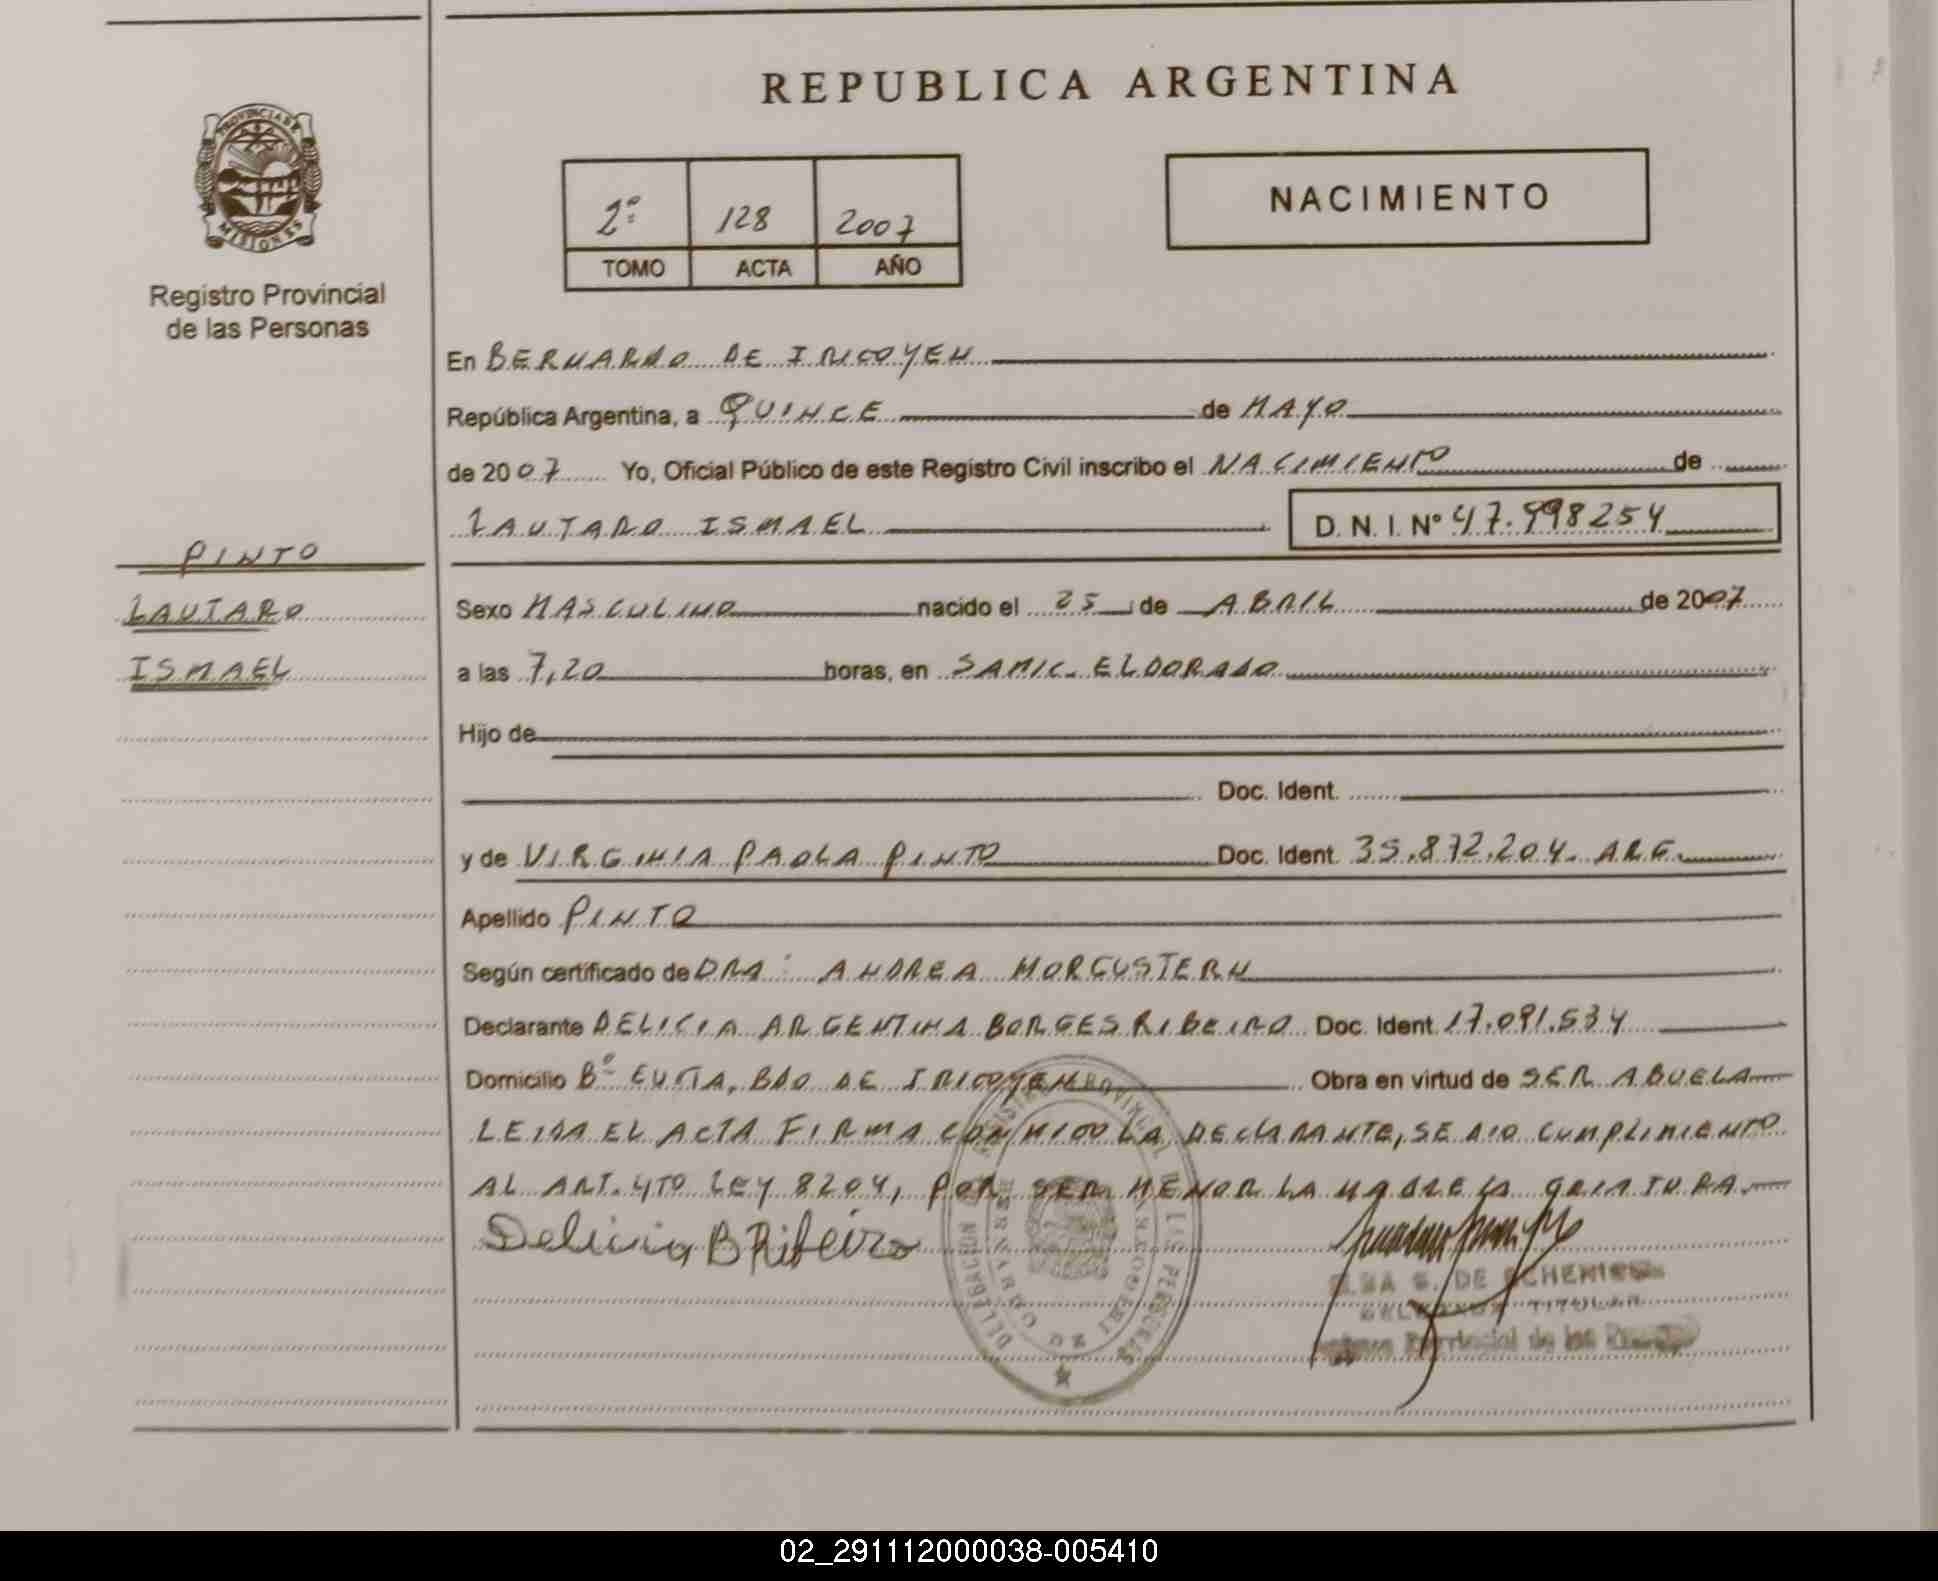 REPUBLICA ARGENTINA
PROVINCIA DE
MISIONES
Registro Provincial
de las Personas
2º 128 2007
TOMO ACTA AÑO
NACIMIENTO
En BERNARDO DE IRIGOYEN
República Argentina, a QUINCE de MAYO
de 2007 Yo, Oficial Público de este Registro Civil inscribo el NACIMIENTO de
LAUTARO ISMAEL D. N. I. Nº 47.998254
PINTO
LAUTARO
ISMAEL
Sexo MASCULINO nacido el 25 de ABRIL de 2007
a las 7,20 horas, en SAMIC. ELDORADO
Hijo de
Doc. Ident.
y de VIRGINIA PAOLA PINTO Doc. Ident. 35.872.204. ARG.
Apellido PINTO
Según certificado de DRA: ANDREA MORGUSTERN
Declarante DELICIA ARGENTINA BORGES RIBEIRO Doc. Ident. 17.091.534
Domicilio Bº EVITA, BDO DE IRIGOYEN Obra en virtud de SER ABUELA
LEIDA EL ACTA FIRMA CONMIGO LA DECLARANTE, SE DIO CUMPLIMIENTO
AL ART. 4TO LEY 8204, POR SER MENOR LA MADRE LA CRIATURA
Delicia B Ribeiro
DE
TITULAR
Provincial de las
02_291112000038-005410